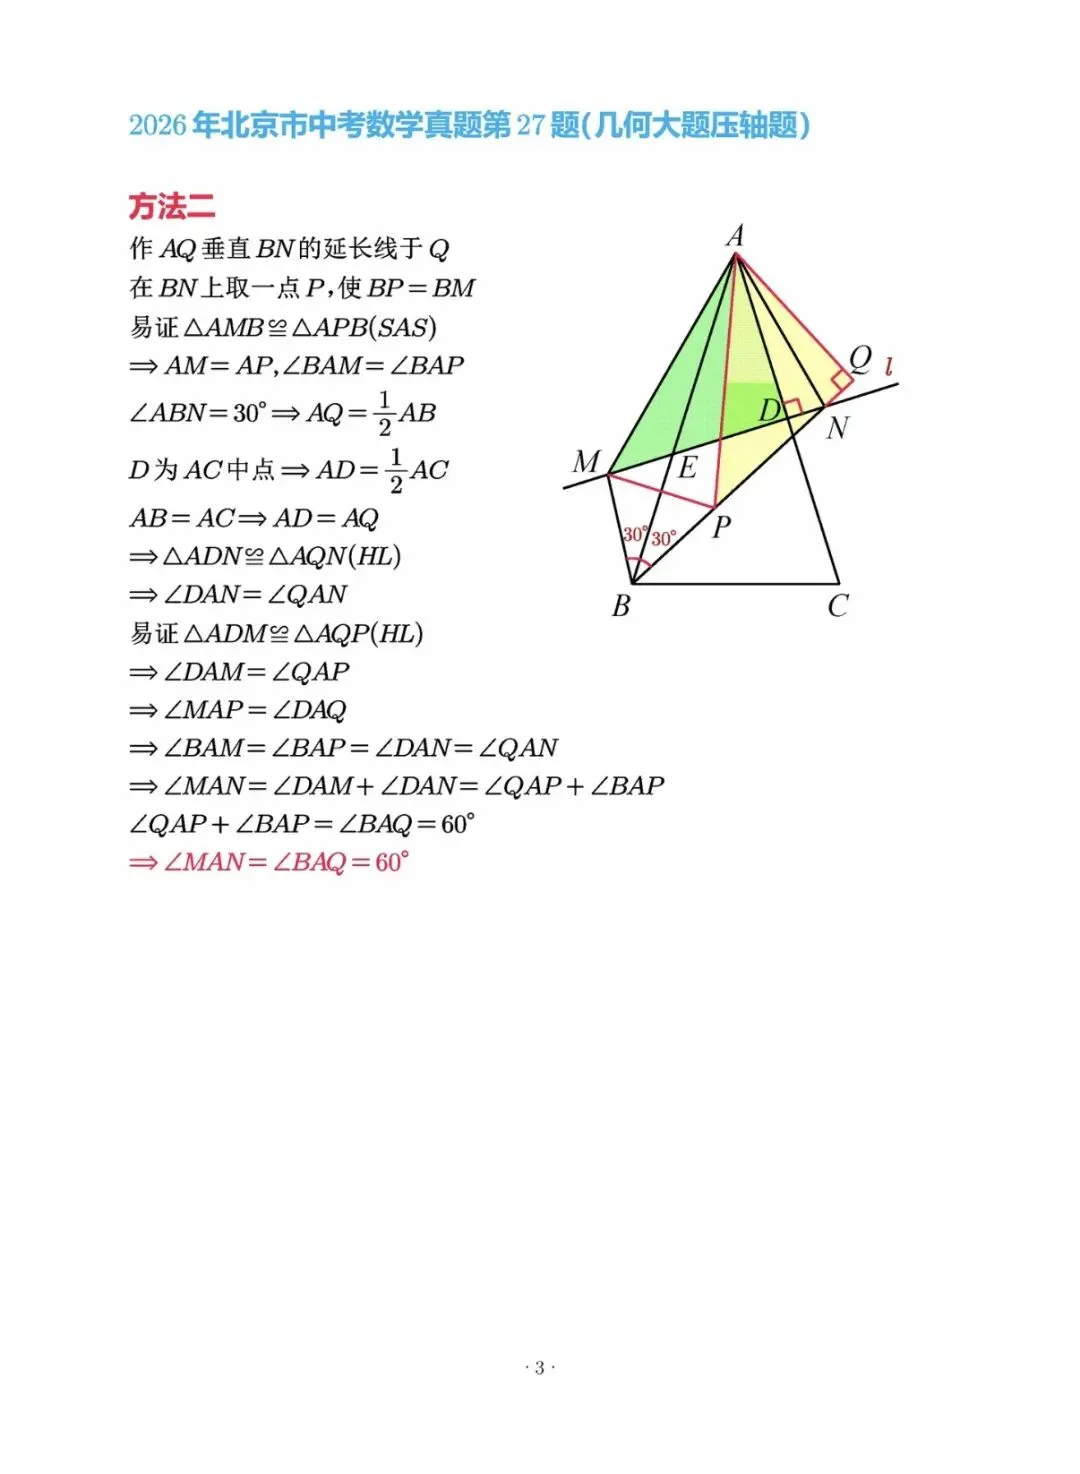 2026年北京市中考数学真题第27题(几何大题压轴题)
方法二
作AQ垂直BN的延长线于Q
在BN上取一点P,使BP=BM
易证△AMB≌△APB(SAS)
⇒AM=AP,∠BAM=∠BAP
∠ABN=30°⇒AQ=1/2AB
D为AC中点⇒AD=1/2AC
AB=AC⇒AD=AQ
⇒△ADN≌△AQN(HL)
⇒∠DAN=∠QAN
易证△ADM≌△AQP(HL)
⇒∠DAM=∠QAP
⇒∠MAP=∠DAQ
⇒∠BAM=∠BAP=∠DAN=∠QAN
⇒∠MAN=∠DAM+∠DAN=∠QAP+∠BAP
∠QAP+∠BAP=∠BAQ=60°
⇒∠MAN=∠BAQ=60°
A
Q l
D
N
M E
P
30° 30°
B C
·3·